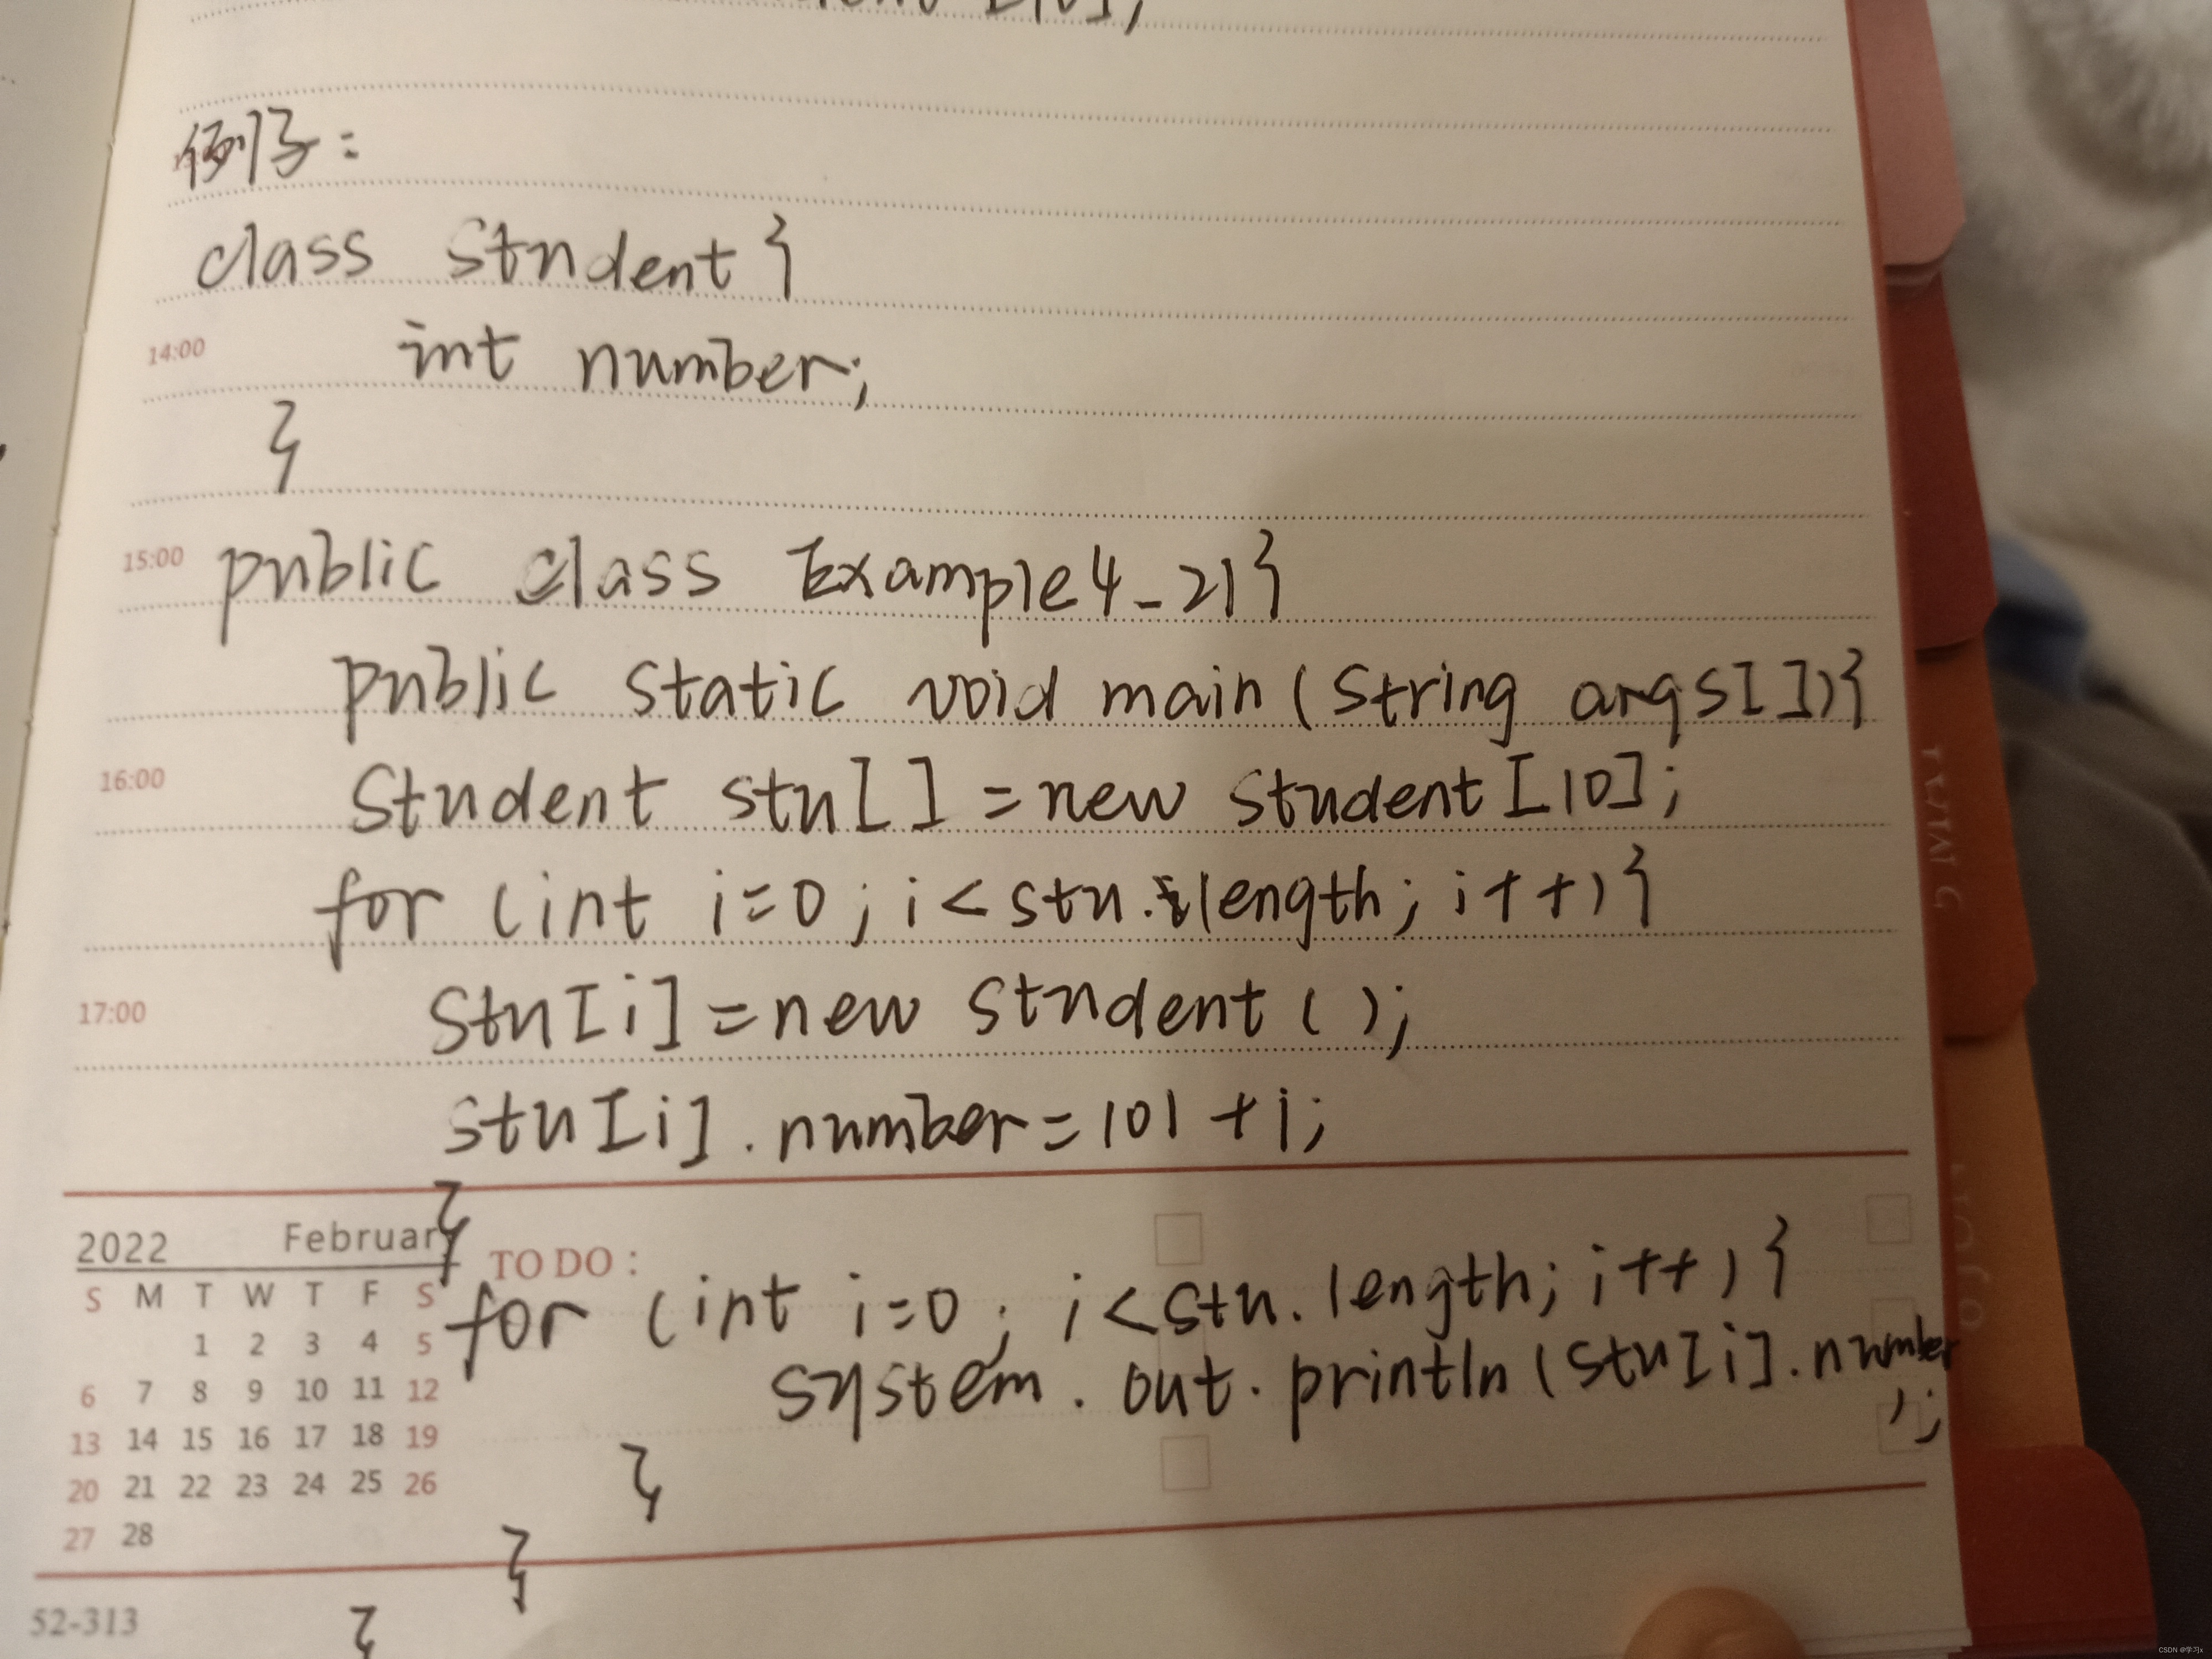 例子：
class Student {
14:00
int number;
}
15:00
public class Example4_21{
public static void main (String args[]){
16:00
Student stu[] = new Student[10];
for (int i=0; i<stu.length; i++){
17:00
stu[i] = new Student ();
stu[i].number=101+i;
}
2022 February
TO DO :
S M T W T F S
for (int i=0; i<stu.length; i++){
1 2 3 4 5
system.out.println(stu[i].number
6 7 8 9 10 11 12
);
13 14 15 16 17 18 19
}
20 21 22 23 24 25 26
27 28
}
52-313
}
CSDN @学习x